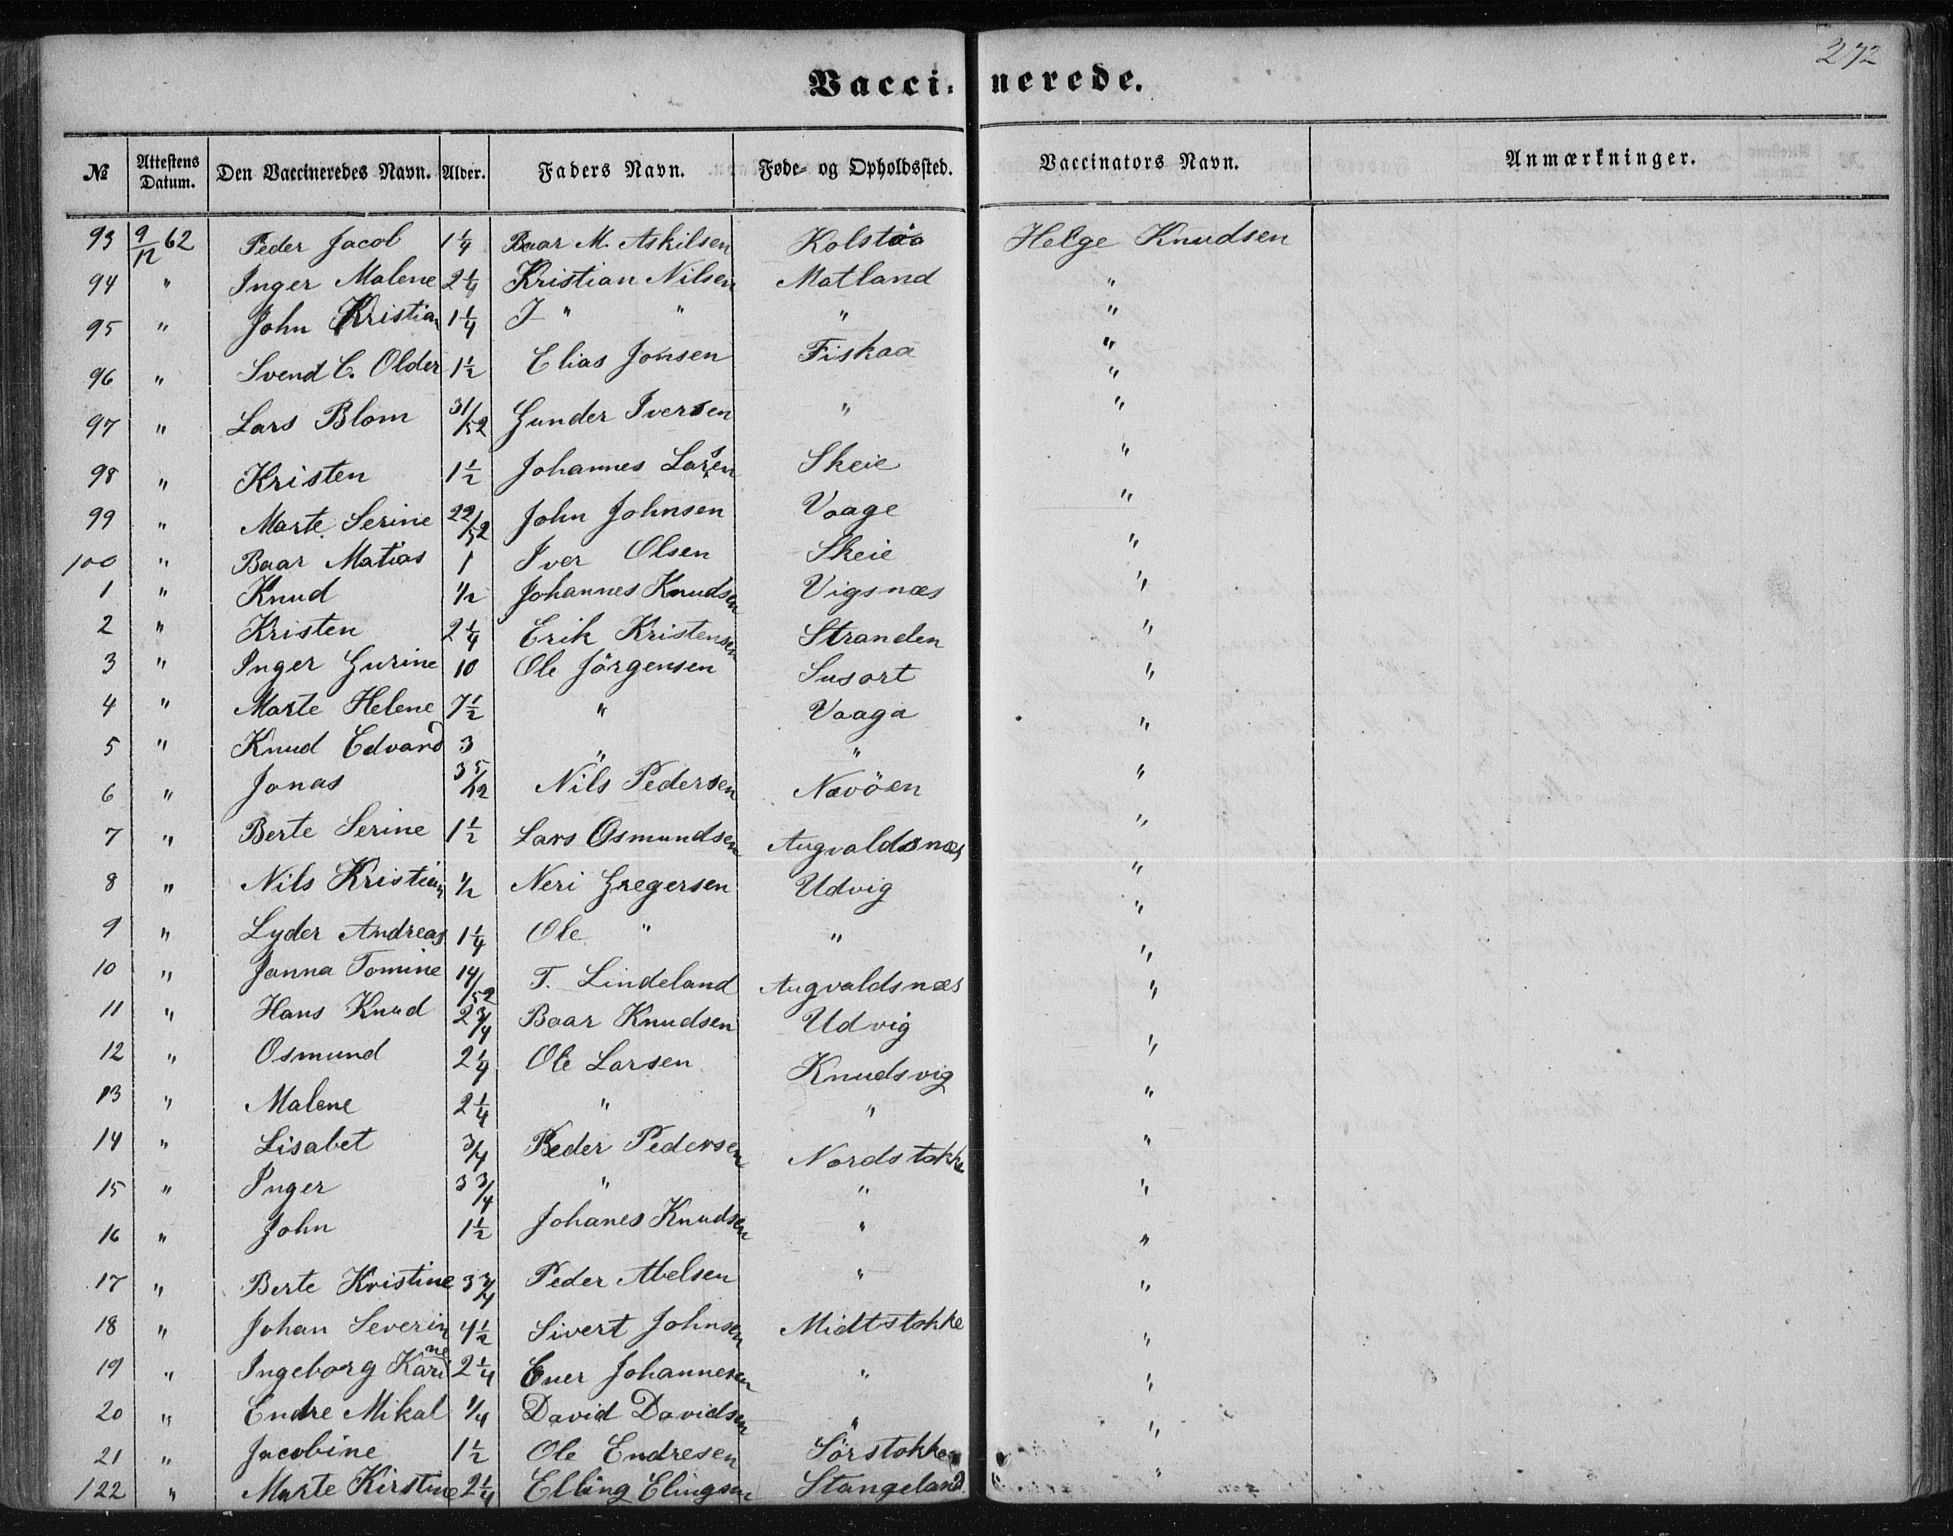 272
Vaccinerede.
№ Attestens Datum. Den Vaccineredes Navn. Alder. Faders Navn. Føde- og Opholdssted. Vaccinators Navn. Anmærkninger.
93 9/12 62 Peder Jacob 1 1/4 Baar M. Askilsen Kolstøo Helge Knudsen
94 " Inger Malene 2 1/4 Kristian Nilsen Matland "
95 " John Kristian 1 1/4 J " " " "
96 " Svend C. Older 1 1/2 Elias Jonsen Fiskaa "
97 " Lars Blom 31/52 Gunder Iversen " "
98 " Kristen 1 1/2 Johannes Larsen Skeie "
99 " Marte Serine 22/52 John Johnsen Vaage "
100 " Baar Matias 1 Iver Olsen Skeie "
1 " Knud 1/2 Johannes Knudsen Vigsnæs "
2 " Kristen 2 1/4 Erik Kristensen Stranden "
3 " Inger Gurine 10 Ole Jörgensen Susort "
4 " Marte Helene 7 1/2 " Vaaga "
5 " Knud Edvard 3 " " "
6 " Jonas 3 5/12 Nils Pedersen Nævöen "
7 " Berte Serine 1 1/2 Lars Osmundsen Augvaldsnæs "
8 " Nils Kristian 1/2 Neri Gregersen Udvig "
9 " Lyder Andreas 1 1/4 Ole " " "
10 " Janna Tomine 14/52 T. Lindeland Augvaldsnæs "
11 " Hans Knud 2 3/4 Baar Knudsen Udvig "
12 " Osmund 2 1/4 Ole Larsen Knudsvig "
13 " Malene 2 1/4 " " "
14 " Lisabet 3/4 Peder Pedersen Nordstokke "
15 " Inger 3 3/4 " " "
16 " John 1 1/2 Johanes Knudsen " "
17 " Berte Kristine 3 3/4 Peder Abelsen " "
18 " Johan Severin 4 1/2 Sivert Johnsen Midtstokke "
19 " Ingeborg Karine 2 1/4 Ener Johannesen " "
20 " Endre Mikal 1/4 David Davidsen " "
21 " Jacobine 1 1/2 Ole Endresen Sörstokke "
122 " Marte Kirstine 2 1/4 Elling Elingsen Stangeland "